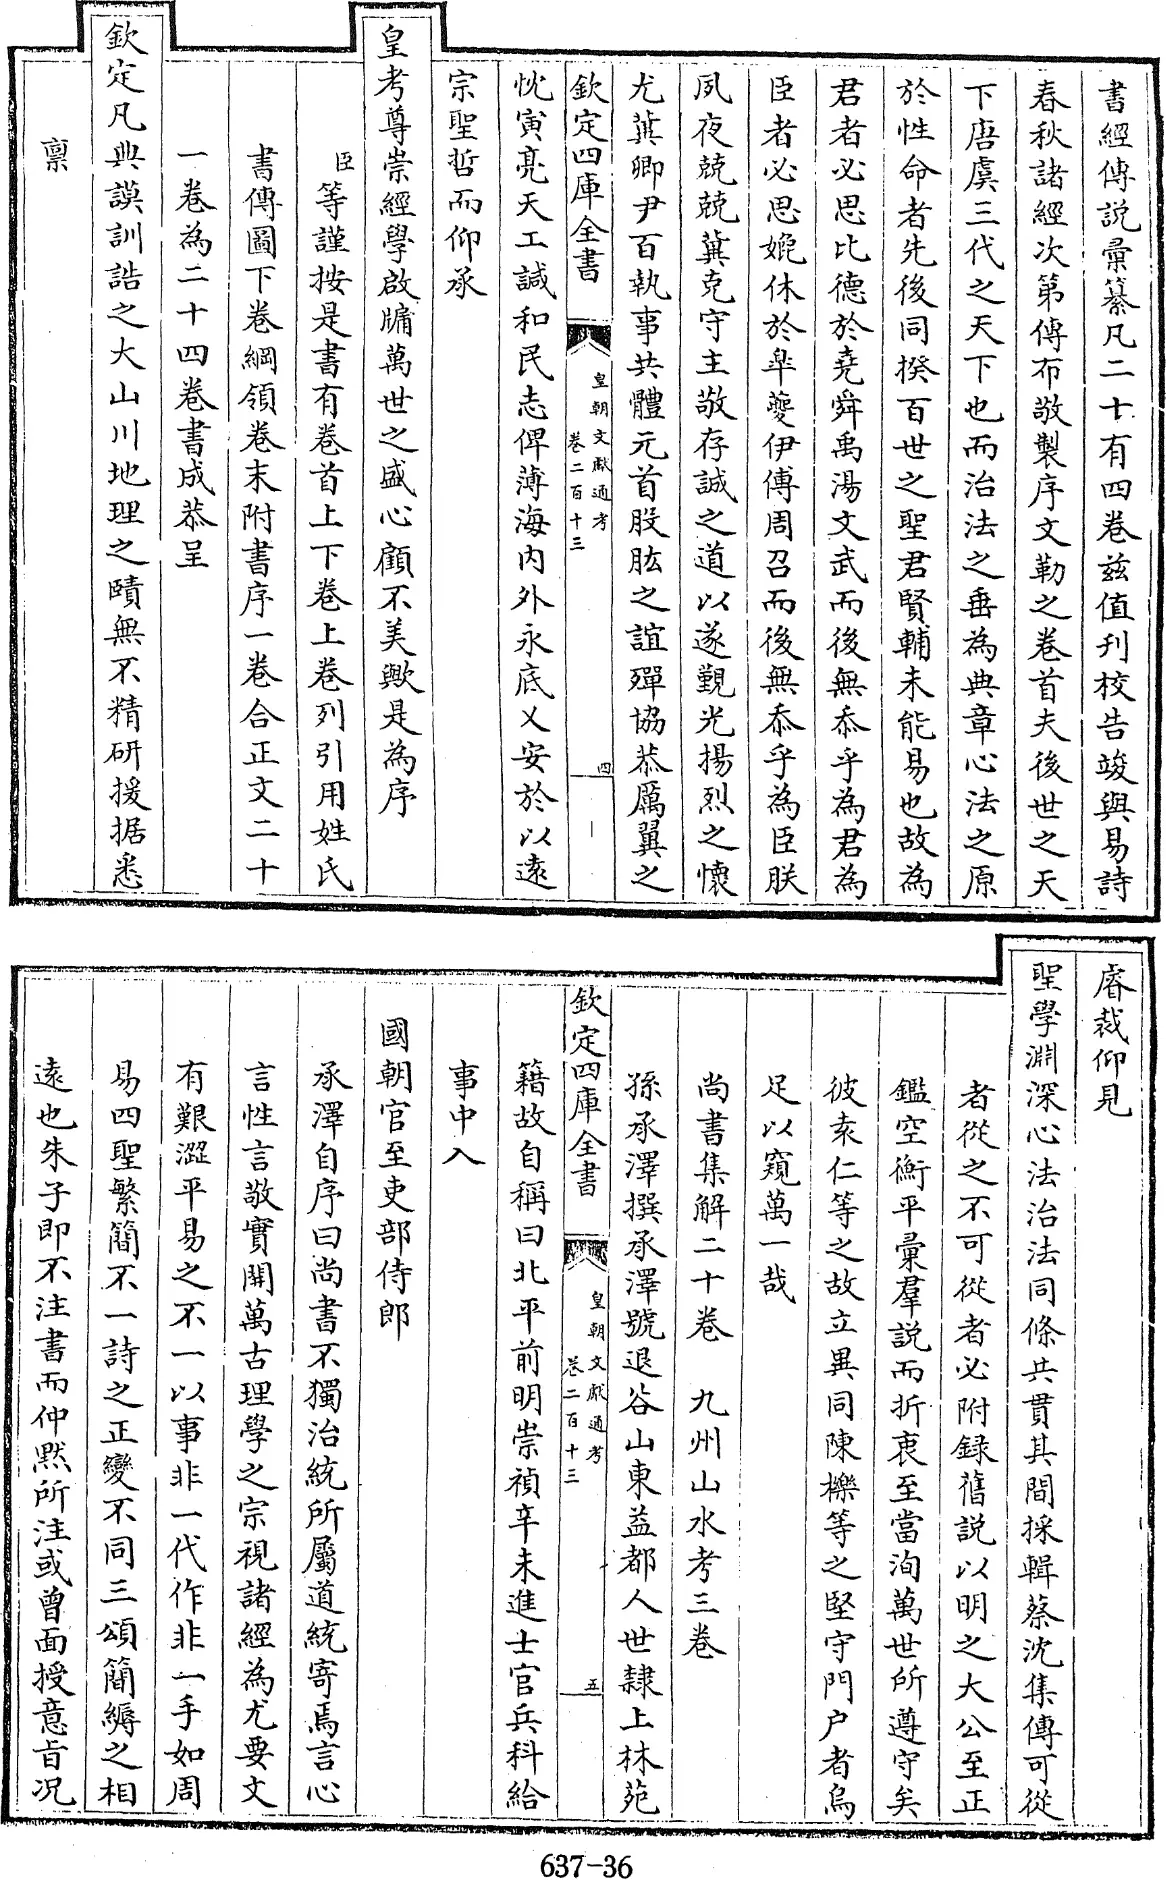 書經傳説彚纂凡二十有四卷兹值刋校告竣與易詩
春秋諸經次第傳布敬製序文勒之卷首夫後世之天
下唐虞三代之天下也而治法之垂為典章心法之原
於性命者先後同揆百世之聖君賢輔未能易也故為
君者必思比德於堯舜禹湯文武而後無忝乎為君為
臣者必思媲休於臯夔伊傅周召而後無忝乎為臣朕
夙夜兢兢冀克守主敬存誠之道以遂覲光揚烈之懷
尤冀卿尹百執事共體元首股肱之誼殫協恭厲翼之
欽定四庫全書
皇朝文獻通考
卷二百十三
四
忱寅亮天工諴和民志俾薄海内外永底乂安於以遠
宗聖哲而仰承
皇考尊崇經學啟牖萬世之盛心顧不美歟是為序
臣等謹按是書有卷首上下卷上卷列引用姓氏
書傳圖下卷綱領卷末附書序一卷合正文二十
一卷為二十四卷書成恭呈
欽定凡典謨訓誥之大山川地理之賾無不精研援据悉
稟
睿裁仰見
聖學淵深心法治法同條共貫其間採輯蔡沈集傳可從
者從之不可從者必附録舊説以明之大公至正
鑑空衡平彙羣説而折衷至當洵萬世所遵守矣
彼袁仁等之故立異同陳櫟等之堅守門户者烏
足以窺萬一哉
尚書集解二十卷 九州山水考三卷
孫承澤撰承澤號退谷山東益都人世隸上林苑
欽定四庫全書
皇朝文獻通考
卷二百十三
五
籍故自稱曰北平前明崇禎辛未進士官兵科給
事中入
國朝官至吏部侍郎
承澤自序曰尚書不獨治統所屬道統寄焉言心
言性言敬實開萬古理學之宗視諸經為尤要文
有艱澀平易之不一以事非一代作非一手如周
易四聖繁簡不一詩之正變不同三頌簡縟之相
遠也朱子即不注書而仲黙所注或曾面授意旨况
637-36